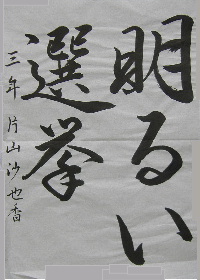 明るい
選挙
三年 片山沙也香